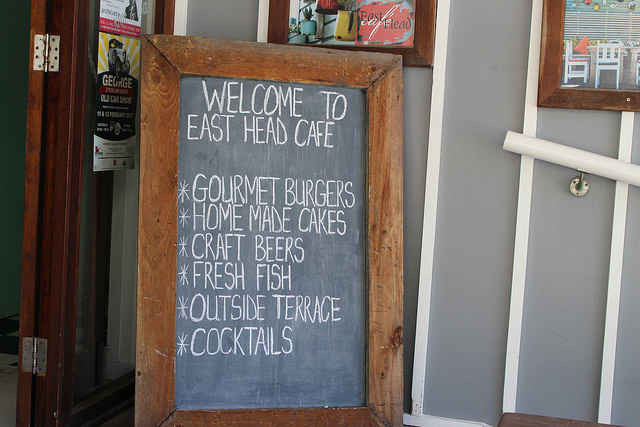 WELCOME TO
EAST HEAD CAFE
*GOURMET BURGERS
*HOME MADE CAKES
*CRAFT BEERS
*FRESH FISH
*OUTSIDE TERRACE
*COCKTAILS
East Head
GEORGE
OLD CAR SHOW
11 & 12 FEBRUARY 2017